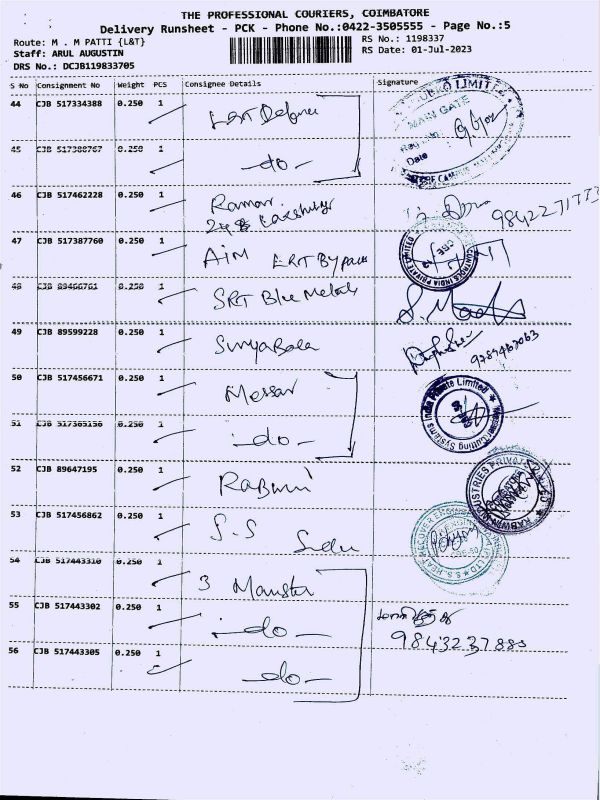 THE PROFESSIONAL COURIERS, COIMBATORE
Delivery Runsheet - PCK - Phone No.:0422-3505555 - Page No.:5
Route: M . M PATTI {L&T}
RS No.: 1198337
Staff: ARUL AUGUSTIN
RS Date: 01-Jul-2023
DRS No.: DCJB119833705
S No Consignment No Weight PCS Consignee Details Signature
44 CJB 517334388 0.250 1
LIMITE
MAIN GATE
Date
45 CJB 517388767 0.250 1 -do-
46 CJB 517462228 0.250 1 Raman
9842271773
47 CJB 517387760 0.250 1 AIM L&T Bypass
CONTROLS INDIA PRIVATE LIMITED
CBE
48 CJB 89466761 0.250 1 SRT Blue Metals
49 CJB 89599228 0.250 1 Surya Bala
9789463063
50 CJB 517456671 0.250 1 Messar
Messer Cutting Systems India Private Limited
51 CJB 517365156 0.250 1 -do-
52 CJB 89647195 0.250 1 Rabwin
RABWIN INDUSTRIES PRIVATE LIMITED
53 CJB 517456862 0.250 1 S.S
S.S. HEAT RECOVER
54 CJB 517443310 0.250 1 3
55 CJB 517443302 0.250 1 -do-
9843237885
56 CJB 517443305 0.250 1 -do-